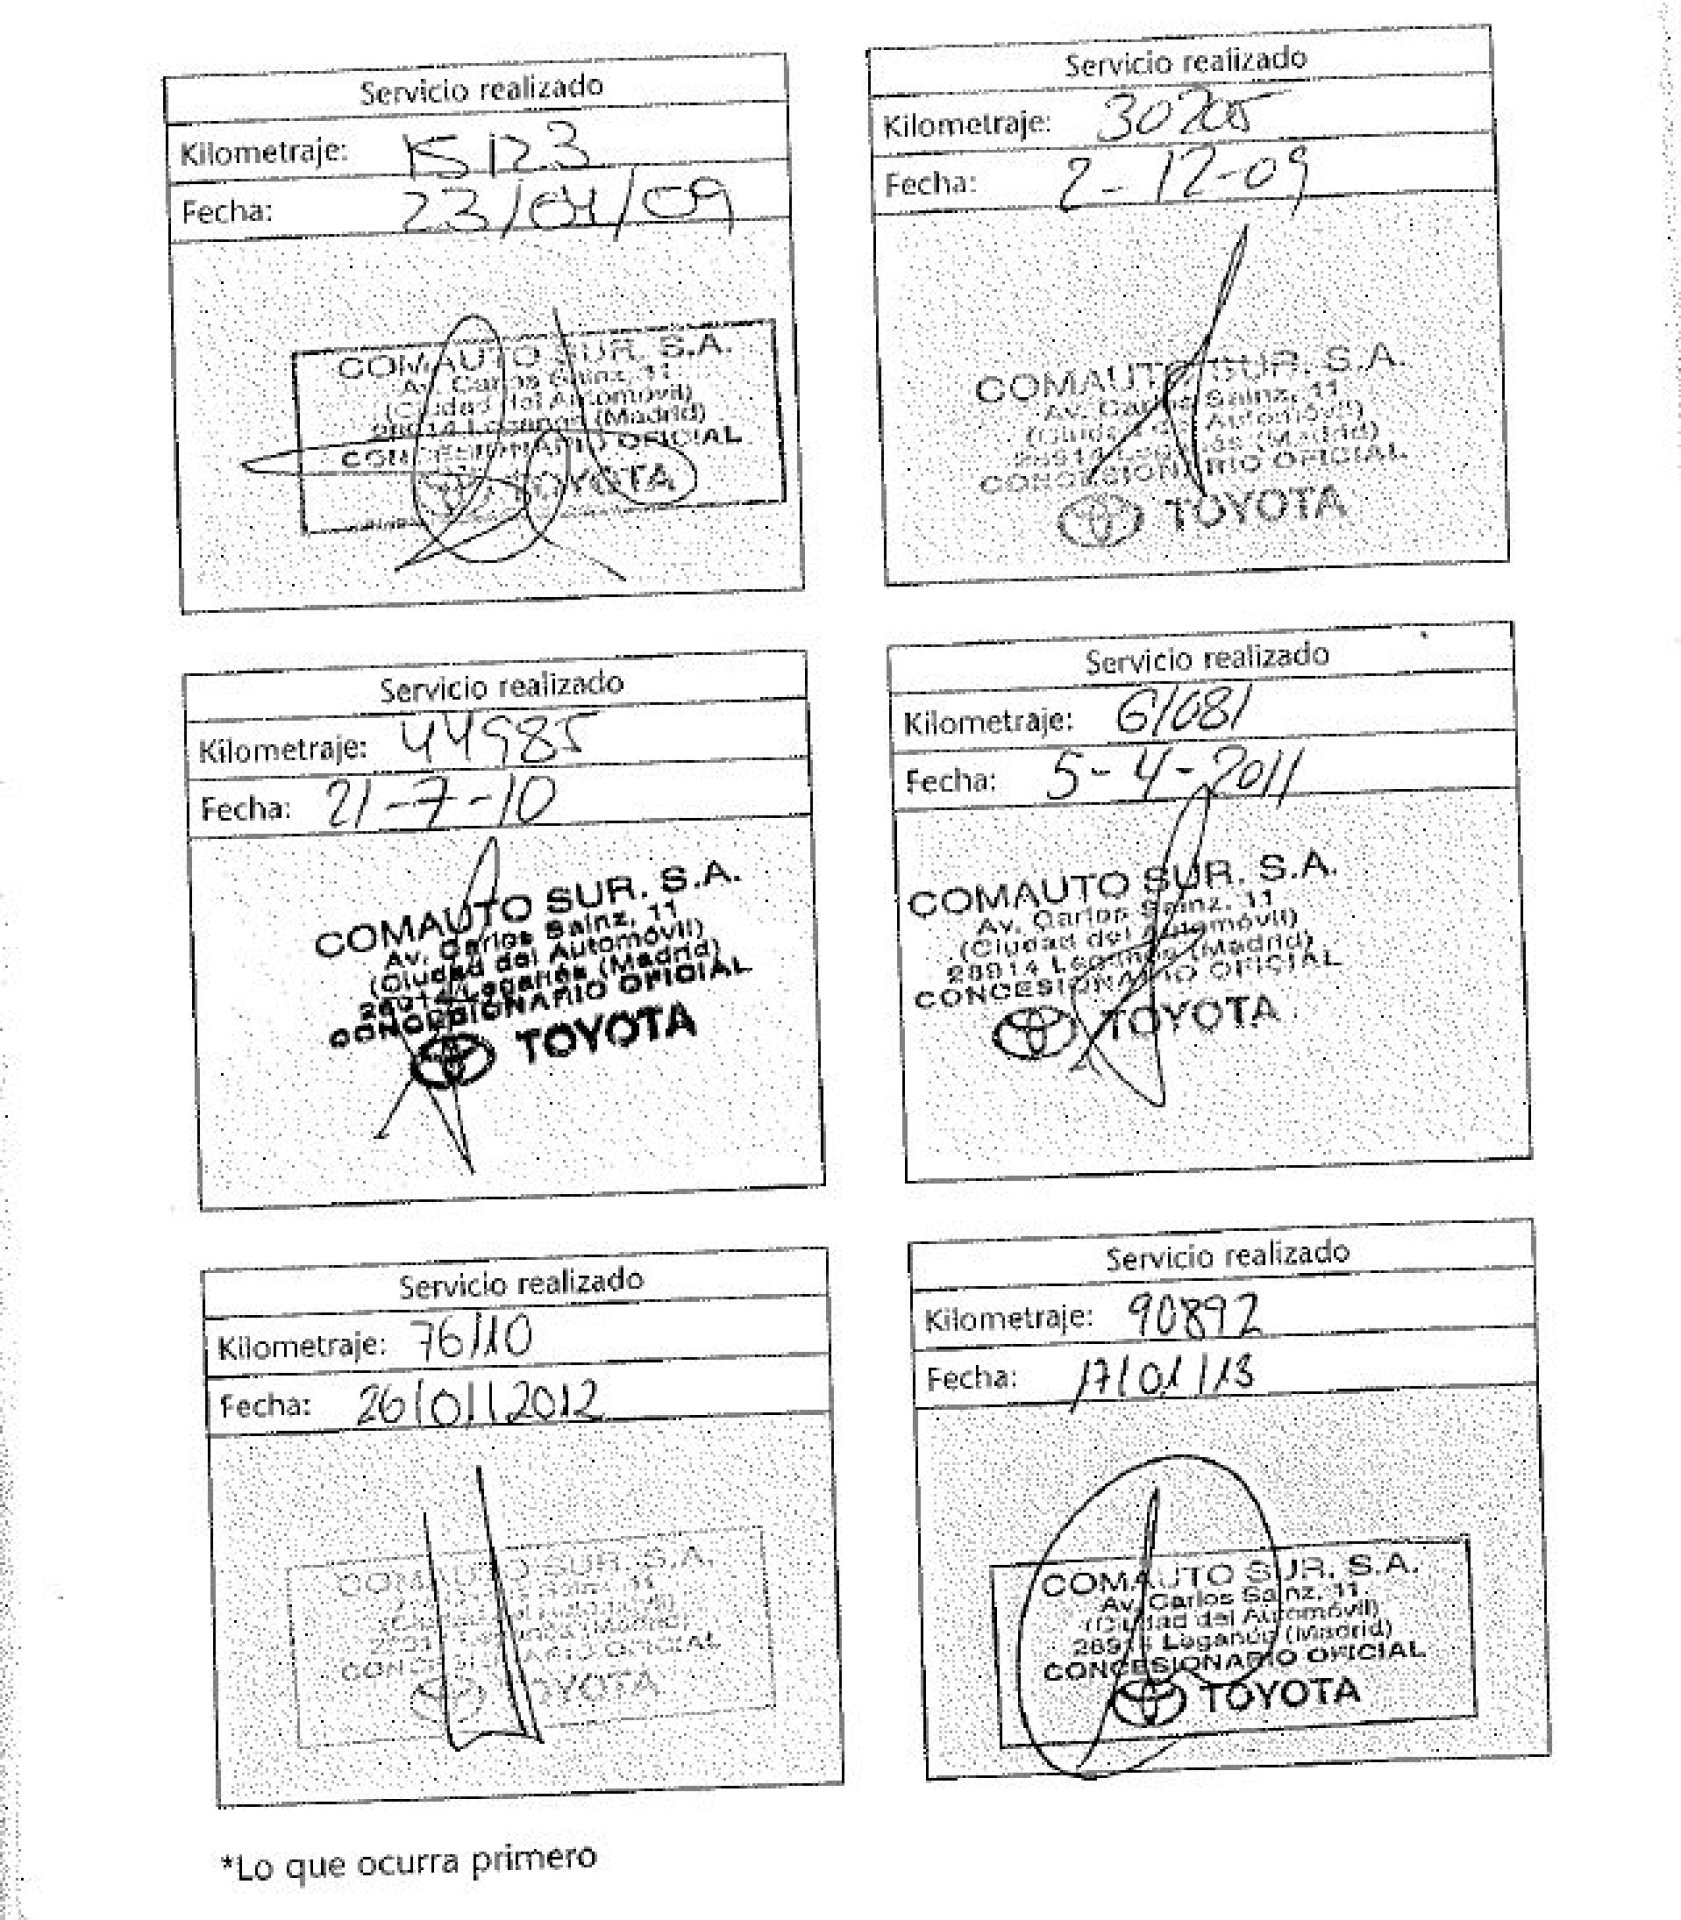 Servicio realizado
Kilometraje: 15123
Fecha: 23/04/09
COMAUTO SUR. S.A.
Av. Carlos Sainz, 11
(Ciudad del Automóvil)
28914 Leganés (Madrid)
CONCESIONARIO OFICIAL
TOYOTA
Servicio realizado
Kilometraje: 30205
Fecha: 2-12-09
COMAUTO SUR. S.A.
Av. Carlos Sainz, 11
(Ciudad del Automóvil)
28914 Leganés (Madrid)
CONCESIONARIO OFICIAL
TOYOTA
Servicio realizado
Kilometraje: 44985
Fecha: 21-7-10
COMAUTO SUR. S.A.
Av. Carlos Sainz, 11
(Ciudad del Automóvil)
28914 Leganés (Madrid)
CONCESIONARIO OFICIAL
TOYOTA
Servicio realizado
Kilometraje: 61081
Fecha: 5-4-2011
COMAUTO SUR. S.A.
Av. Carlos Sainz, 11
(Ciudad del Automóvil)
28914 Leganés (Madrid)
CONCESIONARIO OFICIAL
TOYOTA
Servicio realizado
Kilometraje: 76110
Fecha: 26/01/2012
COMAUTO SUR. S.A.
Sainz, 11
(Madrid)
CONCESIONARIO OFICIAL
TOYOTA
Servicio realizado
Kilometraje: 90892
Fecha: 17/01/13
COMAUTO SUR. S.A.
Av. Carlos Sainz, 11
(Ciudad del Automóvil)
28914 Leganés (Madrid)
CONCESIONARIO OFICIAL
TOYOTA
*Lo que ocurra primero